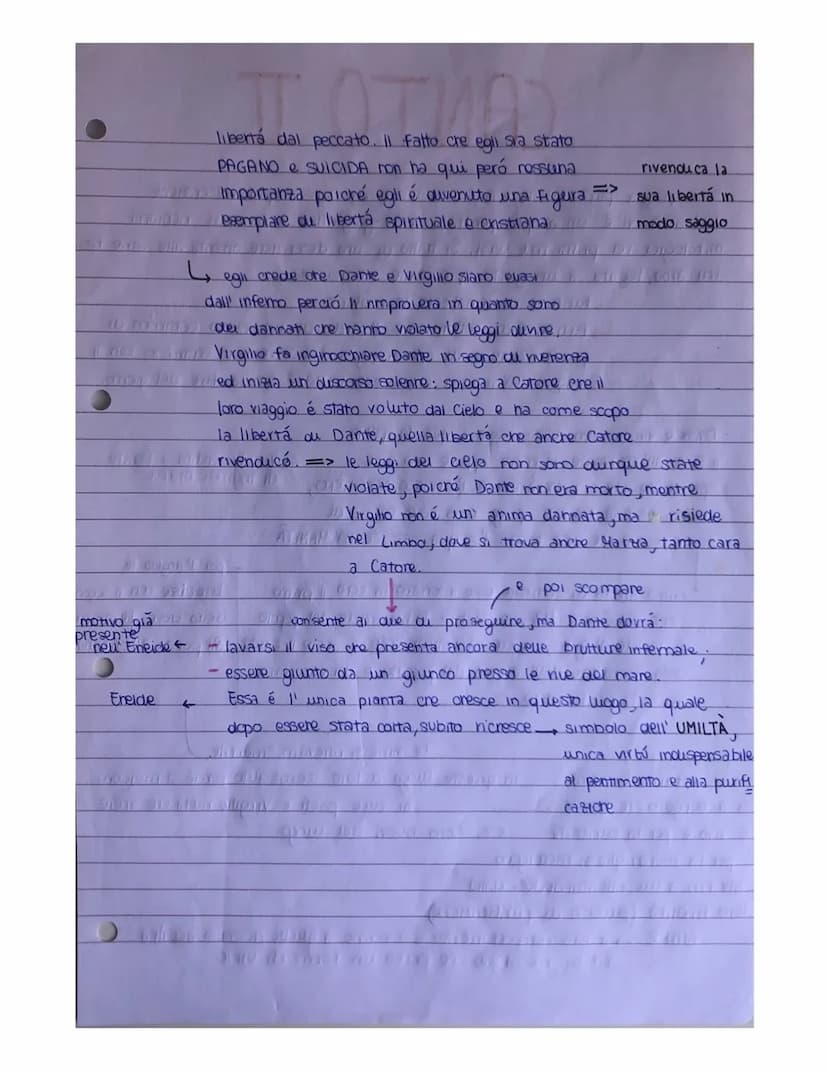 libertá dal peccato. Il fatto che egli sia stato
PAGANO e SUICIDA non ha qui peró nessuna
importanza poiché egli é divenuto una figura => rivendica la
esemplare di libertá spirituale e cristiana sua libertá in
modo saggio
↳ egli crede che Dante e Virgilio siano evasi
dall' inferno perció li rimprovera in quanto sono
dei dannati che hanno violato le leggi divine.
Virgilio fa inginocchiare Dante in segno di riverenza
ed inizia un discorso solenne: spiega a Catone che il
loro viaggio é stato voluto dal Cielo e ha come scopo
la libertá di Dante, quella libertá che anche Catone
rivendicó. => le leggi del cielo non sono dunque state
violate, poiché Dante non era morto, mentre
Virgilio non é un' anima dannata, ma risiede
nel Limbo, dove si trova anche Marzia, tanto cara
a Catone.
e poi scompare
consente ai due di proseguire, ma Dante dovrá:
motivo giá
presente
nell' Eneide ← - lavarsi il viso che presenta ancora delle brutture infernale;
- essere giunto da un giunco presso le rive del mare.
Eneide ← Essa é l' unica pianta che cresce in questo luogo, la quale
dopo essere stata colta, subito ricresce → simbolo dell' UMILTÀ,
unica virtú indispensabile
al pentimento e alla purifi
cazione